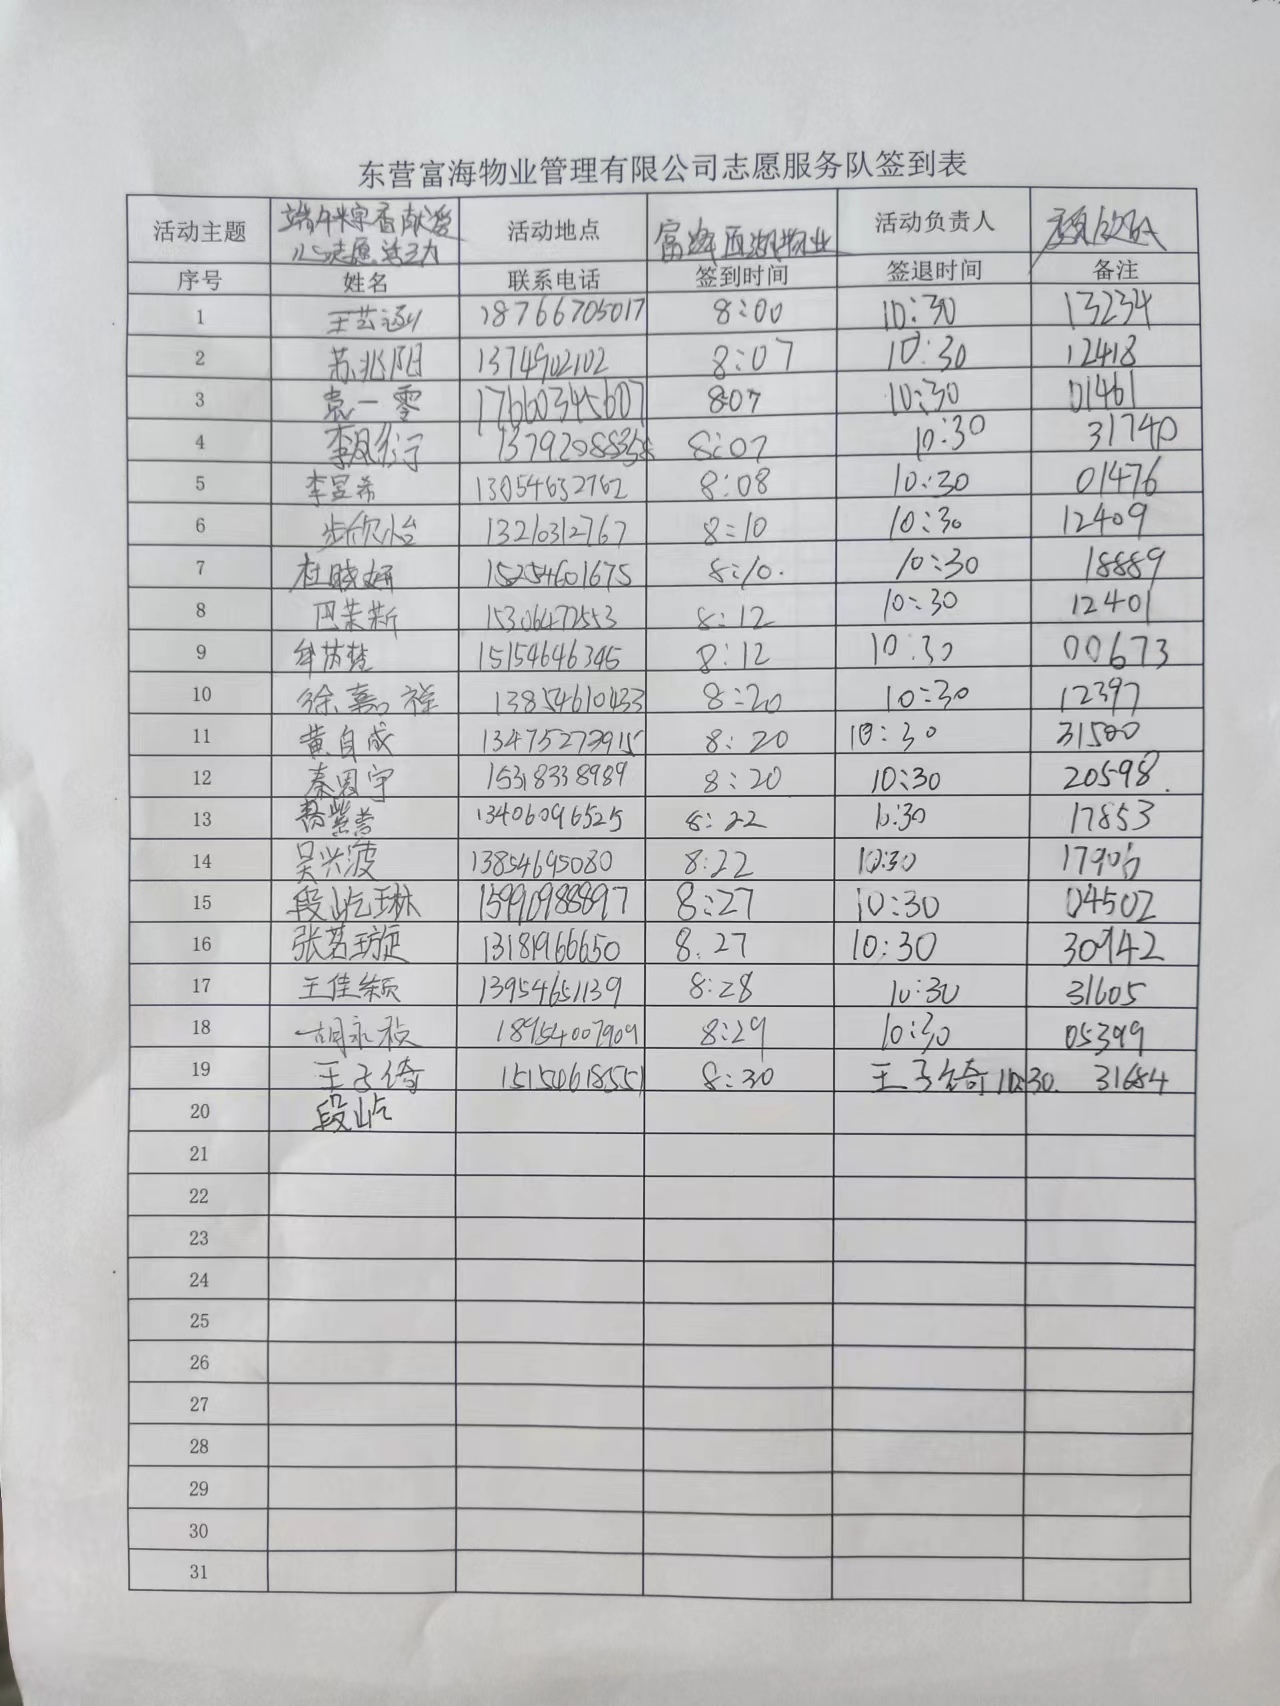 东营富海物业管理有限公司志愿服务队签到表
活动主题 端午粽香献爱心志愿活动 活动地点 富海西湖物业 活动负责人
序号 姓名 联系电话 签到时间 签退时间 备注
1 王艺涵 18766705017 8:00 10:30 13234
2 苏兆阳 1374902102 8:07 10:30 12418
3 袁一零 17660345607 8:07 10:30 01461
4 李凤行 8:07 10:30 31740
5 李昱希 13054632762 8:08 10:30 01476
6 步欣怡 13210312767 8:10 10:30 12409
7 杜晓妍 15254601675 8:10. 10:30 18889
8 巴茉斯 15306472553 8:12 10:30 12401
9 牟芮楚 15154646345 8:12 10:30 00673
10 徐嘉禧 13854610433 8:20 10:30 12397
11 黄自成 13475273915 8:20 10:30 31500
12 秦恩宇 15318338989 8:20 10:30 20598.
13 13406096525 8:22 10:30 17853
14 吴兴波 13854695080 8:22 10:30 17906
15 段屹琳 15990988897 8:27 10:30 04502
16 张茗璇 13181966650 8.27 10:30 30942
17 王佳颖 13954651139 8:28 10:30 31605
18 胡永祯 18954007909 8:29 10:30 05399
19 王子绮 15154618551 8:30 王子绮 10:30. 31684
20 段屹
21
22
23
24
25
26
27
28
29
30
31